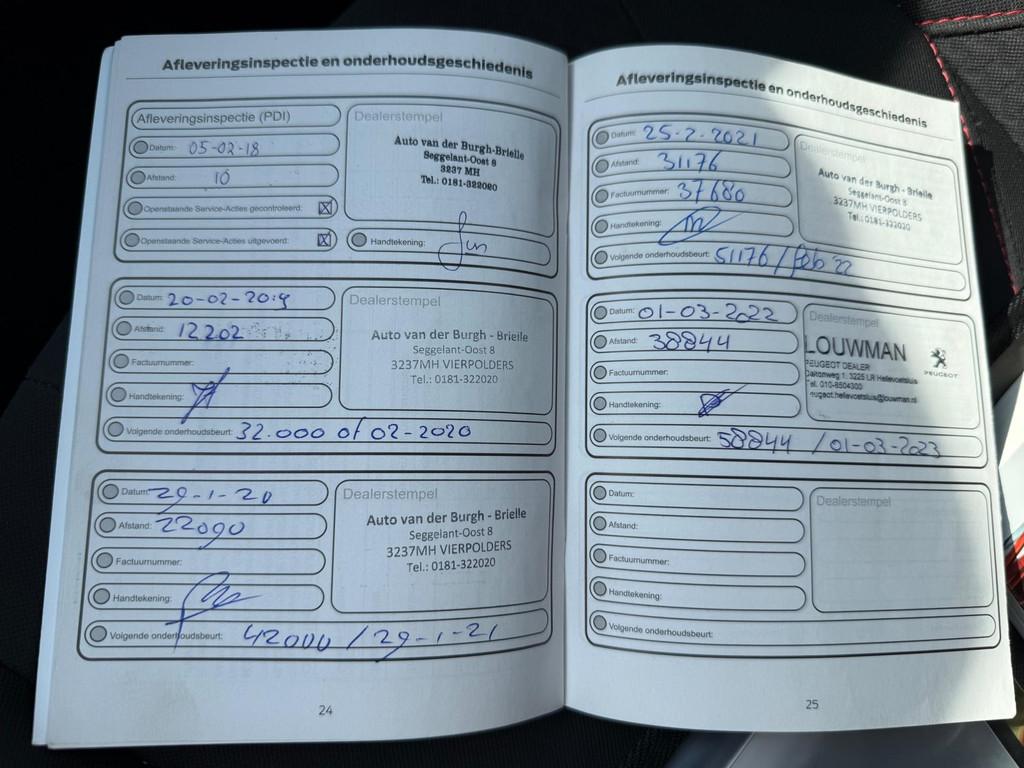 Afleveringsinspectie en onderhoudsgeschiedenis
Afleveringsinspectie (PDI)
Datum: 05-02-18
Afstand: 10
Openstaande Service-Acties gecontroleerd:
Openstaande Service-Acties uitgevoerd:
Dealerstempel
Auto van der Burgh-Brielle
Seggelant-Oost 8
3237 MH
Tel.: 0181-322020
Handtekening:
Datum: 20-02-2019
Afstand: 12202
Factuurnummer:
Handtekening:
Dealerstempel
Auto van der Burgh - Brielle
Seggelant-Oost 8
3237MH VIERPOLDERS
Tel.: 0181-322020
Volgende onderhoudsbeurt: 32.000 of 02-2020
Datum: 29-1-20
Afstand: 22090
Factuurnummer:
Handtekening:
Dealerstempel
Auto van der Burgh - Brielle
Seggelant-Oost 8
3237MH VIERPOLDERS
Tel.: 0181-322020
Volgende onderhoudsbeurt: 42000 / 29-1-21
24
Afleveringsinspectie en onderhoudsgeschiedenis
Datum: 25-2-2021
Afstand: 31176
Factuurnummer: 37680
Handtekening:
Dealerstempel
Auto van der Burgh - Brielle
Seggelant-Oost 8
3237MH VIERPOLDERS
Tel.: 0181-322020
Volgende onderhoudsbeurt: 51176 / feb '22
Datum: 01-03-2022
Afstand: 38844
Factuurnummer:
Handtekening:
Dealerstempel
LOUWMAN
PEUGEOT
PEUGEOT DEALER
Daltonweg 1, 3225 LR Hellevoetsluis
Tel. 010-8504300
peugeot.hellevoetsluis@louwman.nl
Volgende onderhoudsbeurt: 58844 / 01-03-2023
Datum:
Afstand:
Factuurnummer:
Handtekening:
Dealerstempel
Volgende onderhoudsbeurt:
25